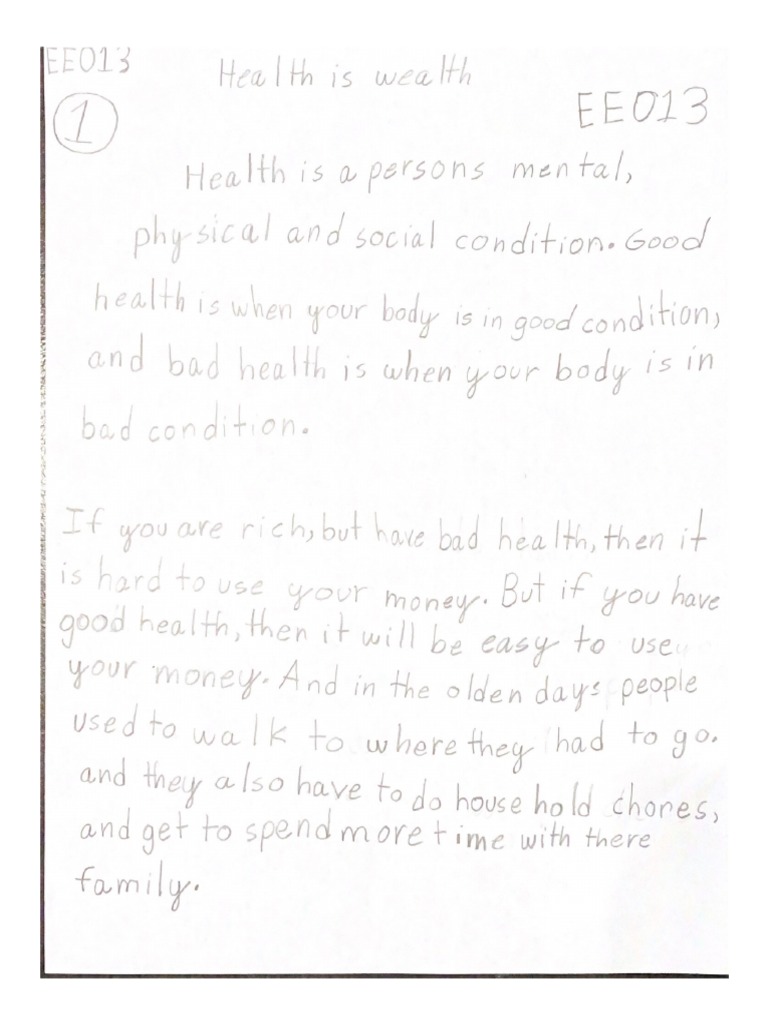 EE013
Health is wealth
EE013
1
Health is a persons mental,
physical and social condition. Good
health is when your body is in good condition,
and bad health is when your body is in
bad condition.
If you are rich, but have bad health, then it
is hard to use your money. But if you have
good health, then it will be easy to use
your money. And in the olden days people
used to walk to where they had to go.
and they also have to do house hold chores,
and get to spend more time with there
family.